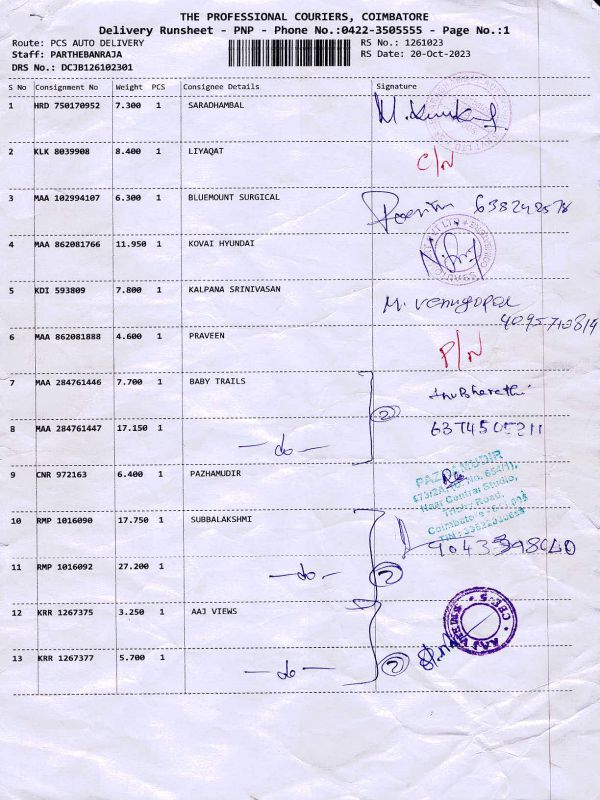 THE PROFESSIONAL COURIERS, COIMBATORE
Delivery Runsheet - PNP - Phone No.:0422-3505555 - Page No.:1
Route: PCS AUTO DELIVERY RS No.: 1261023
Staff: PARTHEBANRAJA RS Date: 20-Oct-2023
DRS No.: DCJB126102301
S No Consignment No Weight PCS Consignee Details Signature
1 HRD 750170952 7.300 1 SARADHAMBAL
2 KLK 8039908 8.400 1 LIYAQAT C/N
3 MAA 102994107 6.300 1 BLUEMOUNT SURGICAL
4 MAA 862081766 11.950 1 KOVAI HYUNDAI
5 KDI 593809 7.800 1 KALPANA SRINIVASAN M. Venugopal
6 MAA 862081888 4.600 1 PRAVEEN P/N
7 MAA 284761446 7.700 1 BABY TRAILS
8 MAA 284761447 17.150 1 -do- 2
9 CNR 972163 6.400 1 PAZHAMUDIR
PAZHAMUDIR
Near Central Studio,
Trichy Road,
10 RMP 1016090 17.750 1 SUBBALAKSHMI
11 RMP 1016092 27.200 1 -do- 2
12 KRR 1267375 3.250 1 AAJ VIEWS
13 KRR 1267377 5.700 1 -do- 2